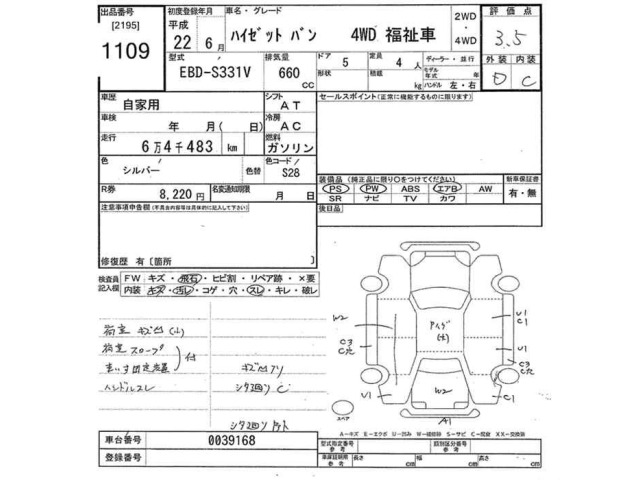 出品番号
[2195]
1109
初度登録年月
平成
22 6月
車名・グレード
ハイゼット バン 4WD 福祉車
2WD
・
4WD
評価点
3.5
外装 内装
D C
型式
EBD-S331V
排気量
660
cc
ドア
5
形状
定員
4 人
積載
kg
ディーラー・並行
モデル年式 年
ハンドル 左・右
車歴
自家用
シフト
AT
車検
年 月( 日)
冷房
AC
走行
6万4千483 km
燃料
ガソリン
色
シルバー
色替
色コード
S28
R券
8,220円
名変通知期限
月 日
セールスポイント(正常に機能するものに限ります)
装備品(純正品に限り○をつけてください)
PS PW ABS エアB AW
SR ナビ TV カワ
新車保証書
有・無
後日品
注意事項申告欄(事実内容等は具体的に記入して下さい)
修復歴 有〔箇所 〕
検査員記入欄
FW キズ・飛石・ヒビ割・リペア跡・×要
内装 キズ・汚レ・コゲ・穴・スレ・キレ・破レ
荷室 キズ凹(小)
荷室 スロープ
車いす固定装置
付
ハンドルスレ
キズ凹アリ
シタ廻り C
シタ廻り
W2
C3
C穴
U1
U1
C1
U1
C3
C穴
C1
W2
A1
スペア
A=キズ E=エクボ U=凹み W=補修跡 S=サビ C=腐食 XX=交換済
車台番号
0039168
登録番号
型式指定番号
参考
類別区分番号
参考
車庫証明用
参考
長さ cm
幅 cm
高さ cm